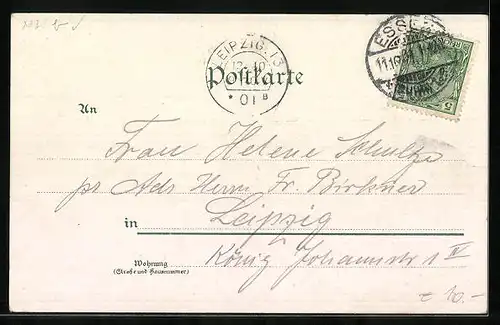 LEIPZIG. 13
12. 10.
* 01 B
ESSEN
Postkarte
An
Frau Helene Schultze
pr Ads Herrn Fr. Birkner
in Leipzig
Wohnung
(Straße und Hausnummer)
König Johannstr 1 IV
10.-